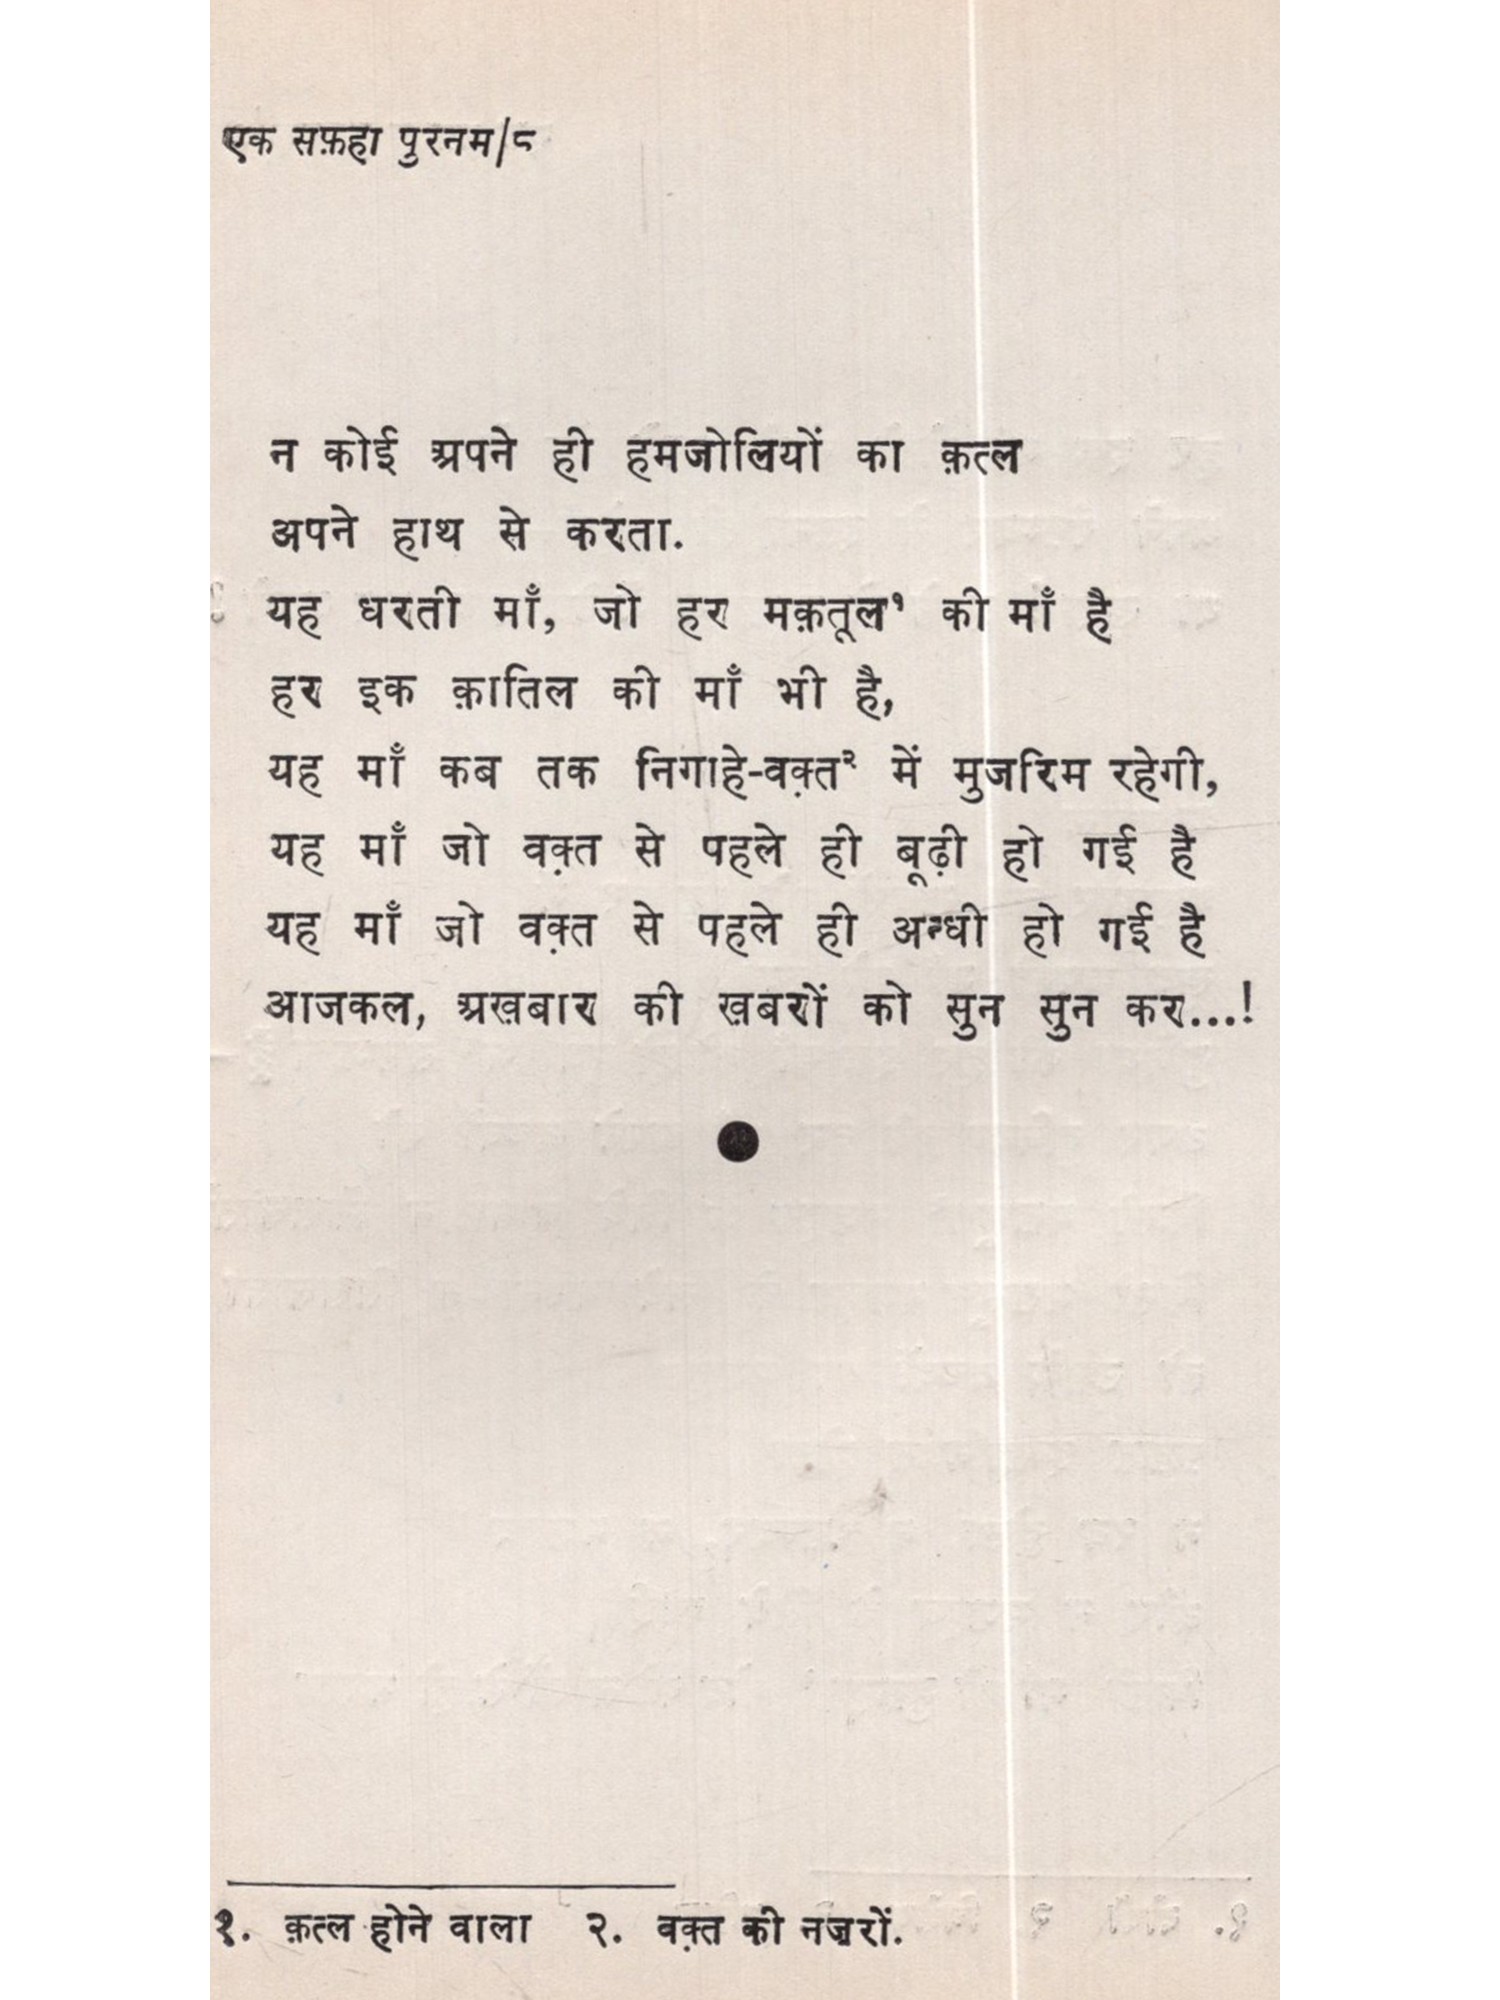 एक सफ़हा पुरनम/८
न कोई अपने ही हमजोलियों का क़त्ल
अपने हाथ से करता.
यह धरती माँ, जो हर मक़तूल¹ की माँ है
हर इक क़ातिल की माँ भी है,
यह माँ कब तक निगाहे-वक़्त² में मुजरिम रहेगी,
यह माँ जो वक़्त से पहले ही बूढ़ी हो गई है
यह माँ जो वक़्त से पहले ही अन्धी हो गई है
आजकल, अख़बार की ख़बरों को सुन सुन कर...!
१. क़त्ल होने वाला २. वक़्त की नज़रों.